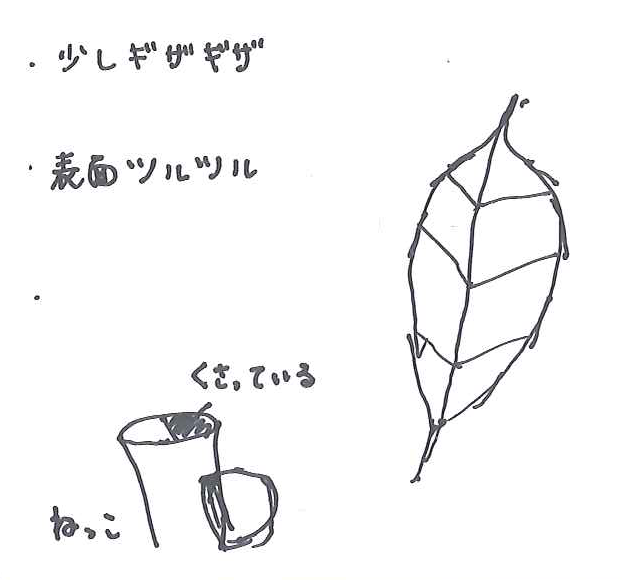 ・少しギザギザ
・表面ツルツル
・
くさっている
ねっこ